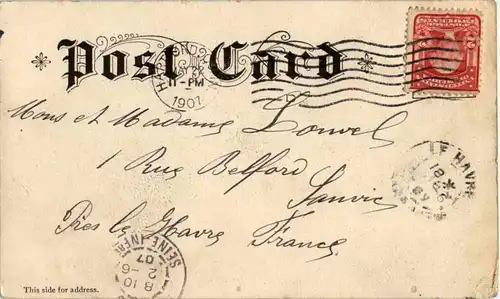 * Post Card *
11-PM
1907
Mons et Madame Louvel
1 Rue Belford
Sanvic
Pres le Havre France
LE HAVRE
SEINE-INFRE
8 10
2-6
07
This side for address.